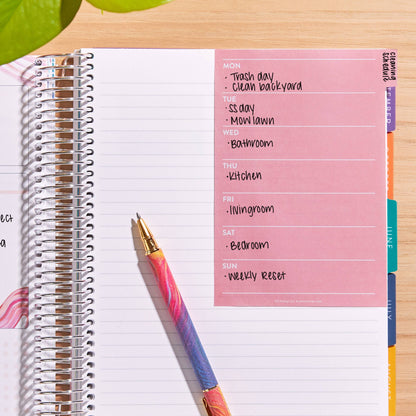 cleaning
schedule
MON
· Trash day
· Clean backyard
TUE
· SS day
· Mow lawn
WED
· Bathroom
THU
· Kitchen
FRI
· livingroom
SAT
· Bedroom
SUN
· Weekly Reset
JUNE
JULY